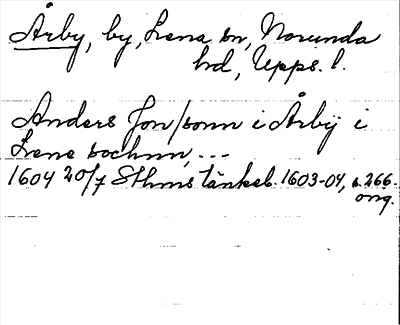 Årby, by, Lena sn, Norunda
hd, Upps. l.
Anders Jon/sonn i Årbÿ i
Lene sochnn, ...
1604 20/7 Sthms tänkeb. 1603-04, s. 266.
orig.